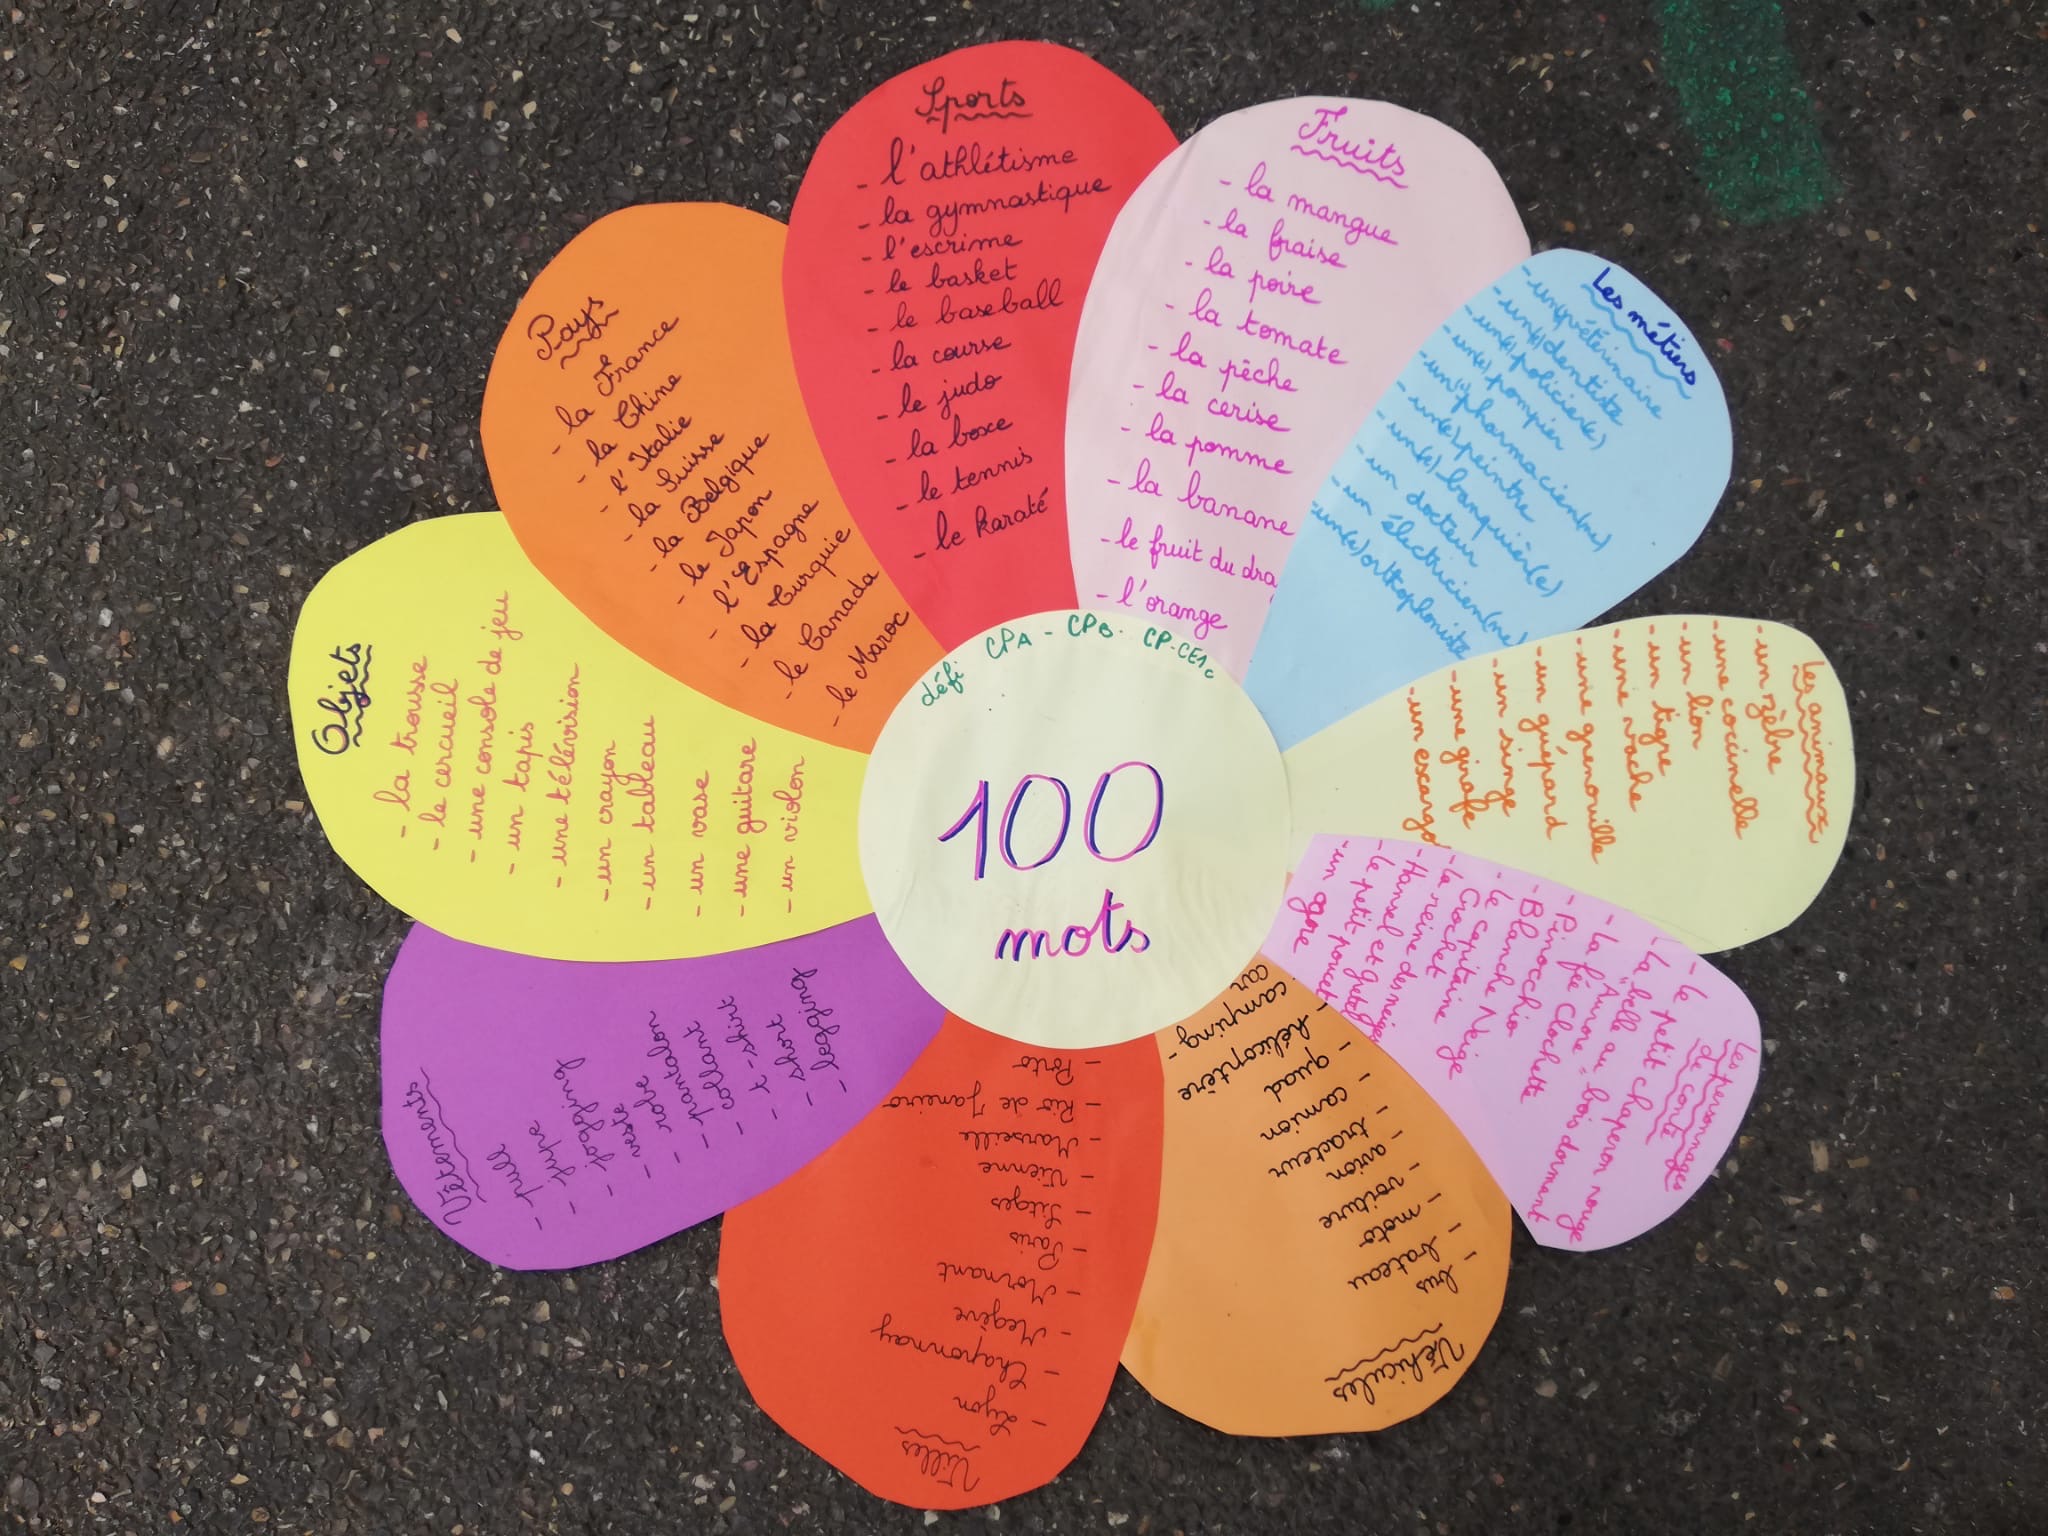 défi CPA - CPB - CP-CE1c
100
mots
Sports
- l'athlétisme
- la gymnastique
- l'escrime
- le basket
- le baseball
- la course
- le judo
- la boxe
- le tennis
- le karaté
Fruits
- la mangue
- la fraise
- la poire
- la tomate
- la pêche
- la cerise
- la pomme
- la banane
- le fruit du dra
- l'orange
Les métiers
- un(e) vétérinaire
- un(e) dentiste
- un(e) policier(e)
- un(e) pompier
- un(e) pharmacien(ne)
- un(e) peintre
- un(e) banquièr(e)
- un docteur
- un électricien(ne)
- un(e) orthophoniste
Les animaux
- un zèbre
- une coccinelle
- un lion
- un tigre
- une vache
- une grenouille
- un guépard
- un singe
- une girafe
- un escargo
Les personnages
de conte
- le petit chaperon rouge
- La "belle au bois dormant
"Aurore"
- La fée Clochette
- Pinocchio
- Blanche Neige
- Le capitaine
Crochet
- la reine des neiges
- Hansel et gretel
- le petit poucet
- un ogre
Véhicules
- bus
- bateau
- moto
- voiture
- avion
- tracteur
- camion
- quad
- hélicoptère
- camping-
car
Villes
- Lyon
- Chaponnay
- Megève
- Mornant
- Paris
- Sitges
- Vienne
- Marseille
- Rio de Janeiro
- Porto
Vêtements
- pull
- jupe
- jogging
- veste
- robe
- pantalon
- collant
- t-shirt
- short
- legging
Objets
- la trousse
- le cercueil
- une console de jeu
- un tapis
- une télévision
- un crayon
- un tableau
- un vase
- une guitare
- un violon
Pays
- la France
- la Chine
- l'Italie
- la Suisse
- la Belgique
- le Japon
- l'Espagne
- la Turquie
- le Canada
- le Maroc